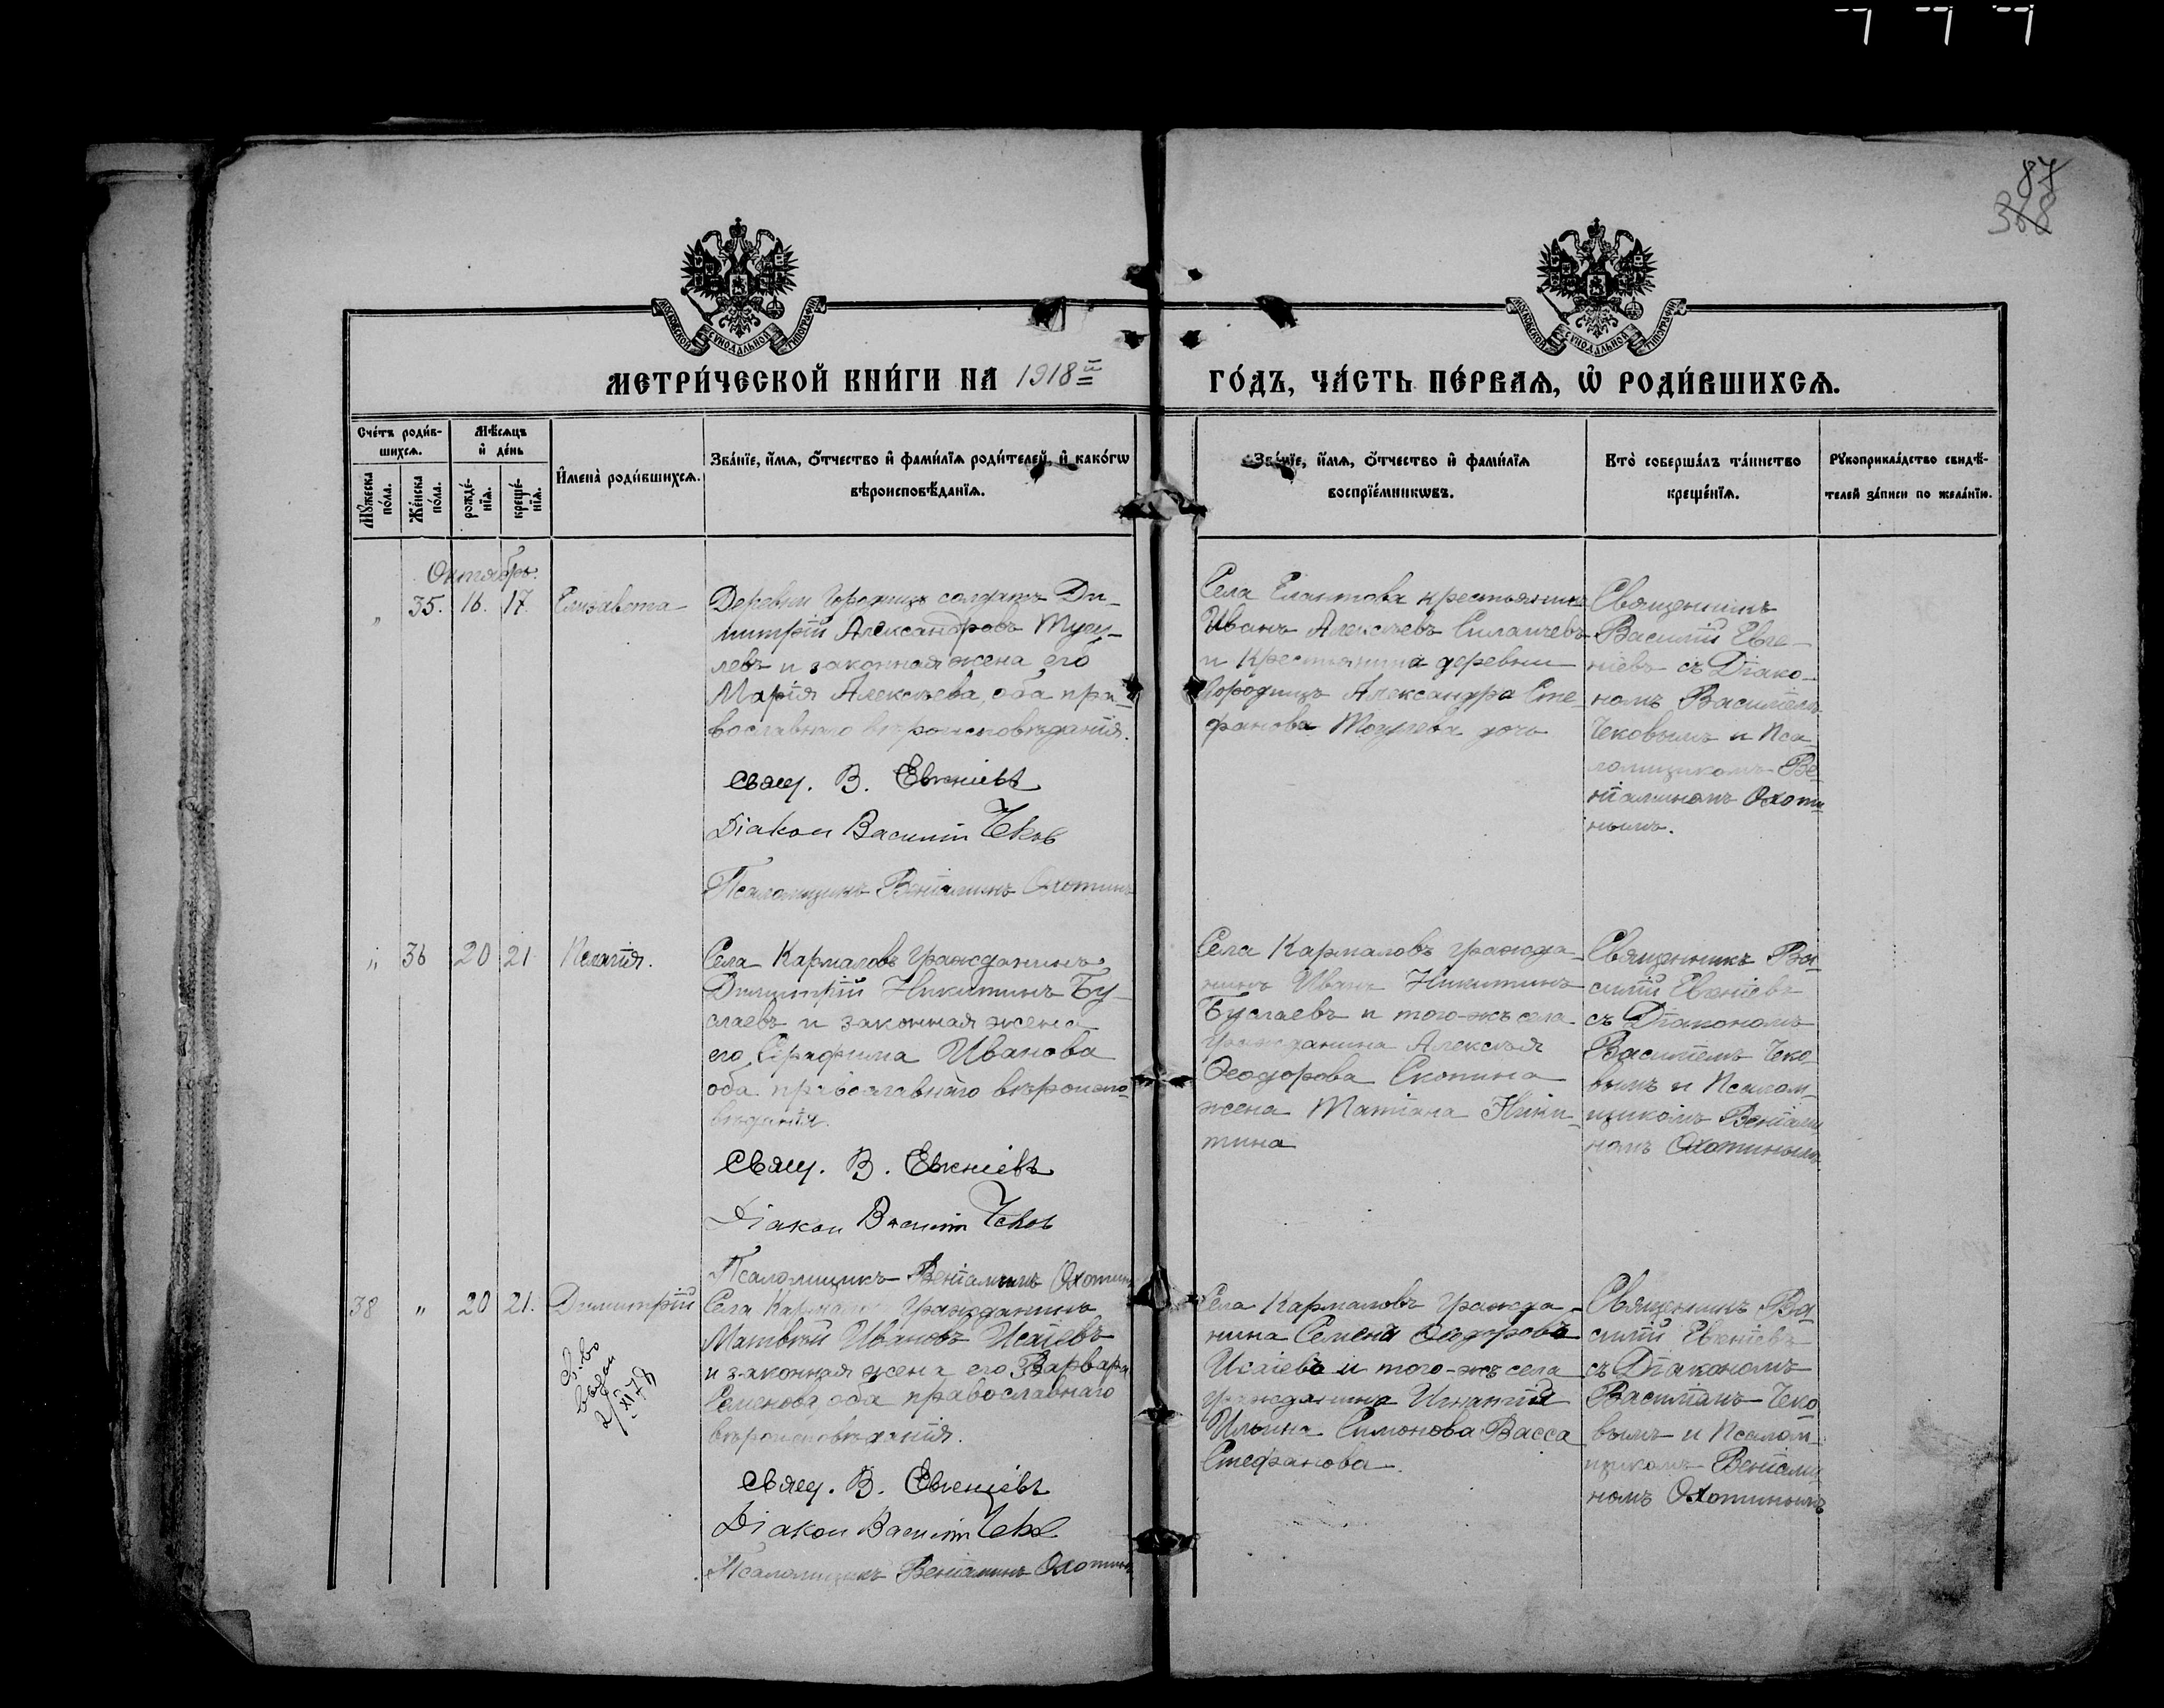 87
368
МОСКОВСКОЙ СѴНОДАЛЬНОЙ ТИПОГРАФІИ
МОСКОВСКОЙ СѴНОДАЛЬНОЙ ТИПОГРАФІИ
МЕТРИ́ЧЕСКОЙ КНИ́ГИ НА 1918й ГО́ДЪ, ЧА́СТЬ ПЕ́РВАѦ, Ѡ҆ РОДИ́ВШИХСѦ.
Сче́тъ роди́в-
шихсѧ.
Мꙋ́жеска
по́ла.
Же́нска
по́ла.
Мѣ́сѧцъ
и҆ де́нь
рожде́-
нїѧ.
креще́-
нїѧ.
И҆мена̀ роди́вшихсѧ.
Зва́нїе, и҆́мѧ, ѻ҆́тчество и҆ фами́лїѧ роди́телей, и҆ како́гѡ
вѣроисповѣ́данїѧ.
Зва́нїе, и҆́мѧ, ѻ҆́тчество и҆ фами́лїѧ
воспрїе́мникѡвъ.
Кто̀ соверша́лъ та́инство
креще́нїѧ.
Рꙋкоприкла́дство свидѣ́-
телей за́писи по жела́нїю.
Октябрь.
„ 35. 16. 17. Елизавета
Деревни Городищъ солдатъ Ди-
митрій Александровъ
и законная жена его
Марія Алексѣева, оба пра-
вославнаго вѣроисповѣданія.
Свящ. В. Евгеніевъ
Діакон Василій Чеков
Псаломщикъ Веніаминъ Охотинъ
Села Елантова крестьянинъ
Иванъ Алексѣевъ
и крестьянина деревни
Городищъ Александра Сте-
фанова дочь
Священникъ
Василій Евге-
ніевъ съ Діако-
номъ Василіемъ
Чековымъ и Пса-
ломщикомъ Ве-
ніаминомъ Охоти-
нымъ.
„ 36 20 21 Пелагія.
Села Кармаловъ Гражданинъ
Димитрій Никитинъ Бу-
слаевъ и законная жена
его Серафима Иванова
оба православнаго вѣроиспо-
вѣданія.
Свящ. В. Евгеніевъ
Діакон Василій Чеков
Псаломщикъ Веніаминъ Охотинъ
Села Кармаловъ гражда-
нинъ Иванъ Никитинъ
Буслаевъ и того-жъ села
гражданина Алексѣя
Ѳеодорова Скопина
жена Матіана Ники-
тина
Священникъ Ва-
силій Евгеніевъ
съ Діакономъ
Василіемъ Чеко-
вымъ и Псалом-
щикомъ Веніами-
номъ Охотинымъ.
38 „ 20 21. Димитрій
Села Кармаловъ Гражданинъ
Матвѣй Ивановъ Исаіевъ
и законная жена его Варвара
Семенова, оба православнаго
вѣроисповѣданія.
Свящ. В. Евгеніевъ
Діакон Василій Чеков
Псаломщикъ Веніаминъ Охотинъ
Села Кармаловъ гражда-
нина Семена Ѳеодорова
Исаіева и того-жъ села
гражданина Игнатія
Ильина Симонова Васса
Стефанова.
Священникъ Ва-
силій Евгеніевъ
съ Діакономъ
Василіемъ Чеко-
вымъ и Псалом-
щикомъ Веніами-
номъ Охотинымъ